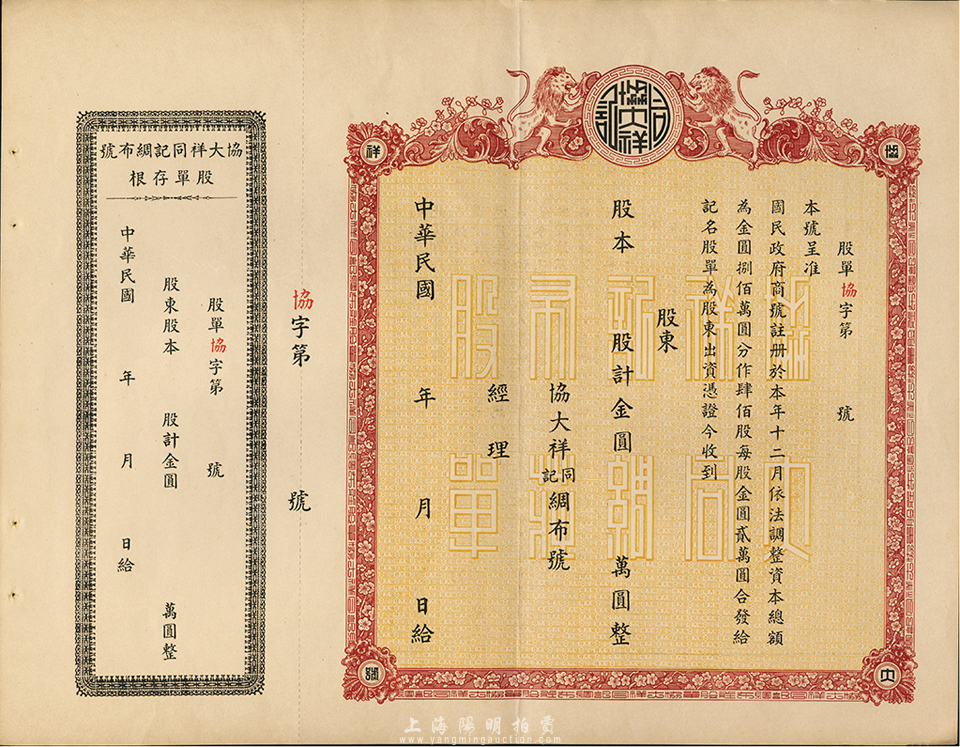 協大祥同記
協
祥
股單協字第 號
本號呈准
國民政府商號註册於本年十二月依法調整資本總額
為金圓捌佰萬圓分作肆佰股每股金圓貳萬圓合發給
記名股單為股東出資憑證今收到
股東
股本 股計金圓 萬圓整
協大祥同記綢布號
經理
中華民國 年 月 日給
大
協字第 號
號布綢記同祥大協
根存單股
股單協字第 號
股東股本 股計金圓 萬圓整
中華民國 年 月 日給
上海陽明拍賣
www.yangmingauction.com